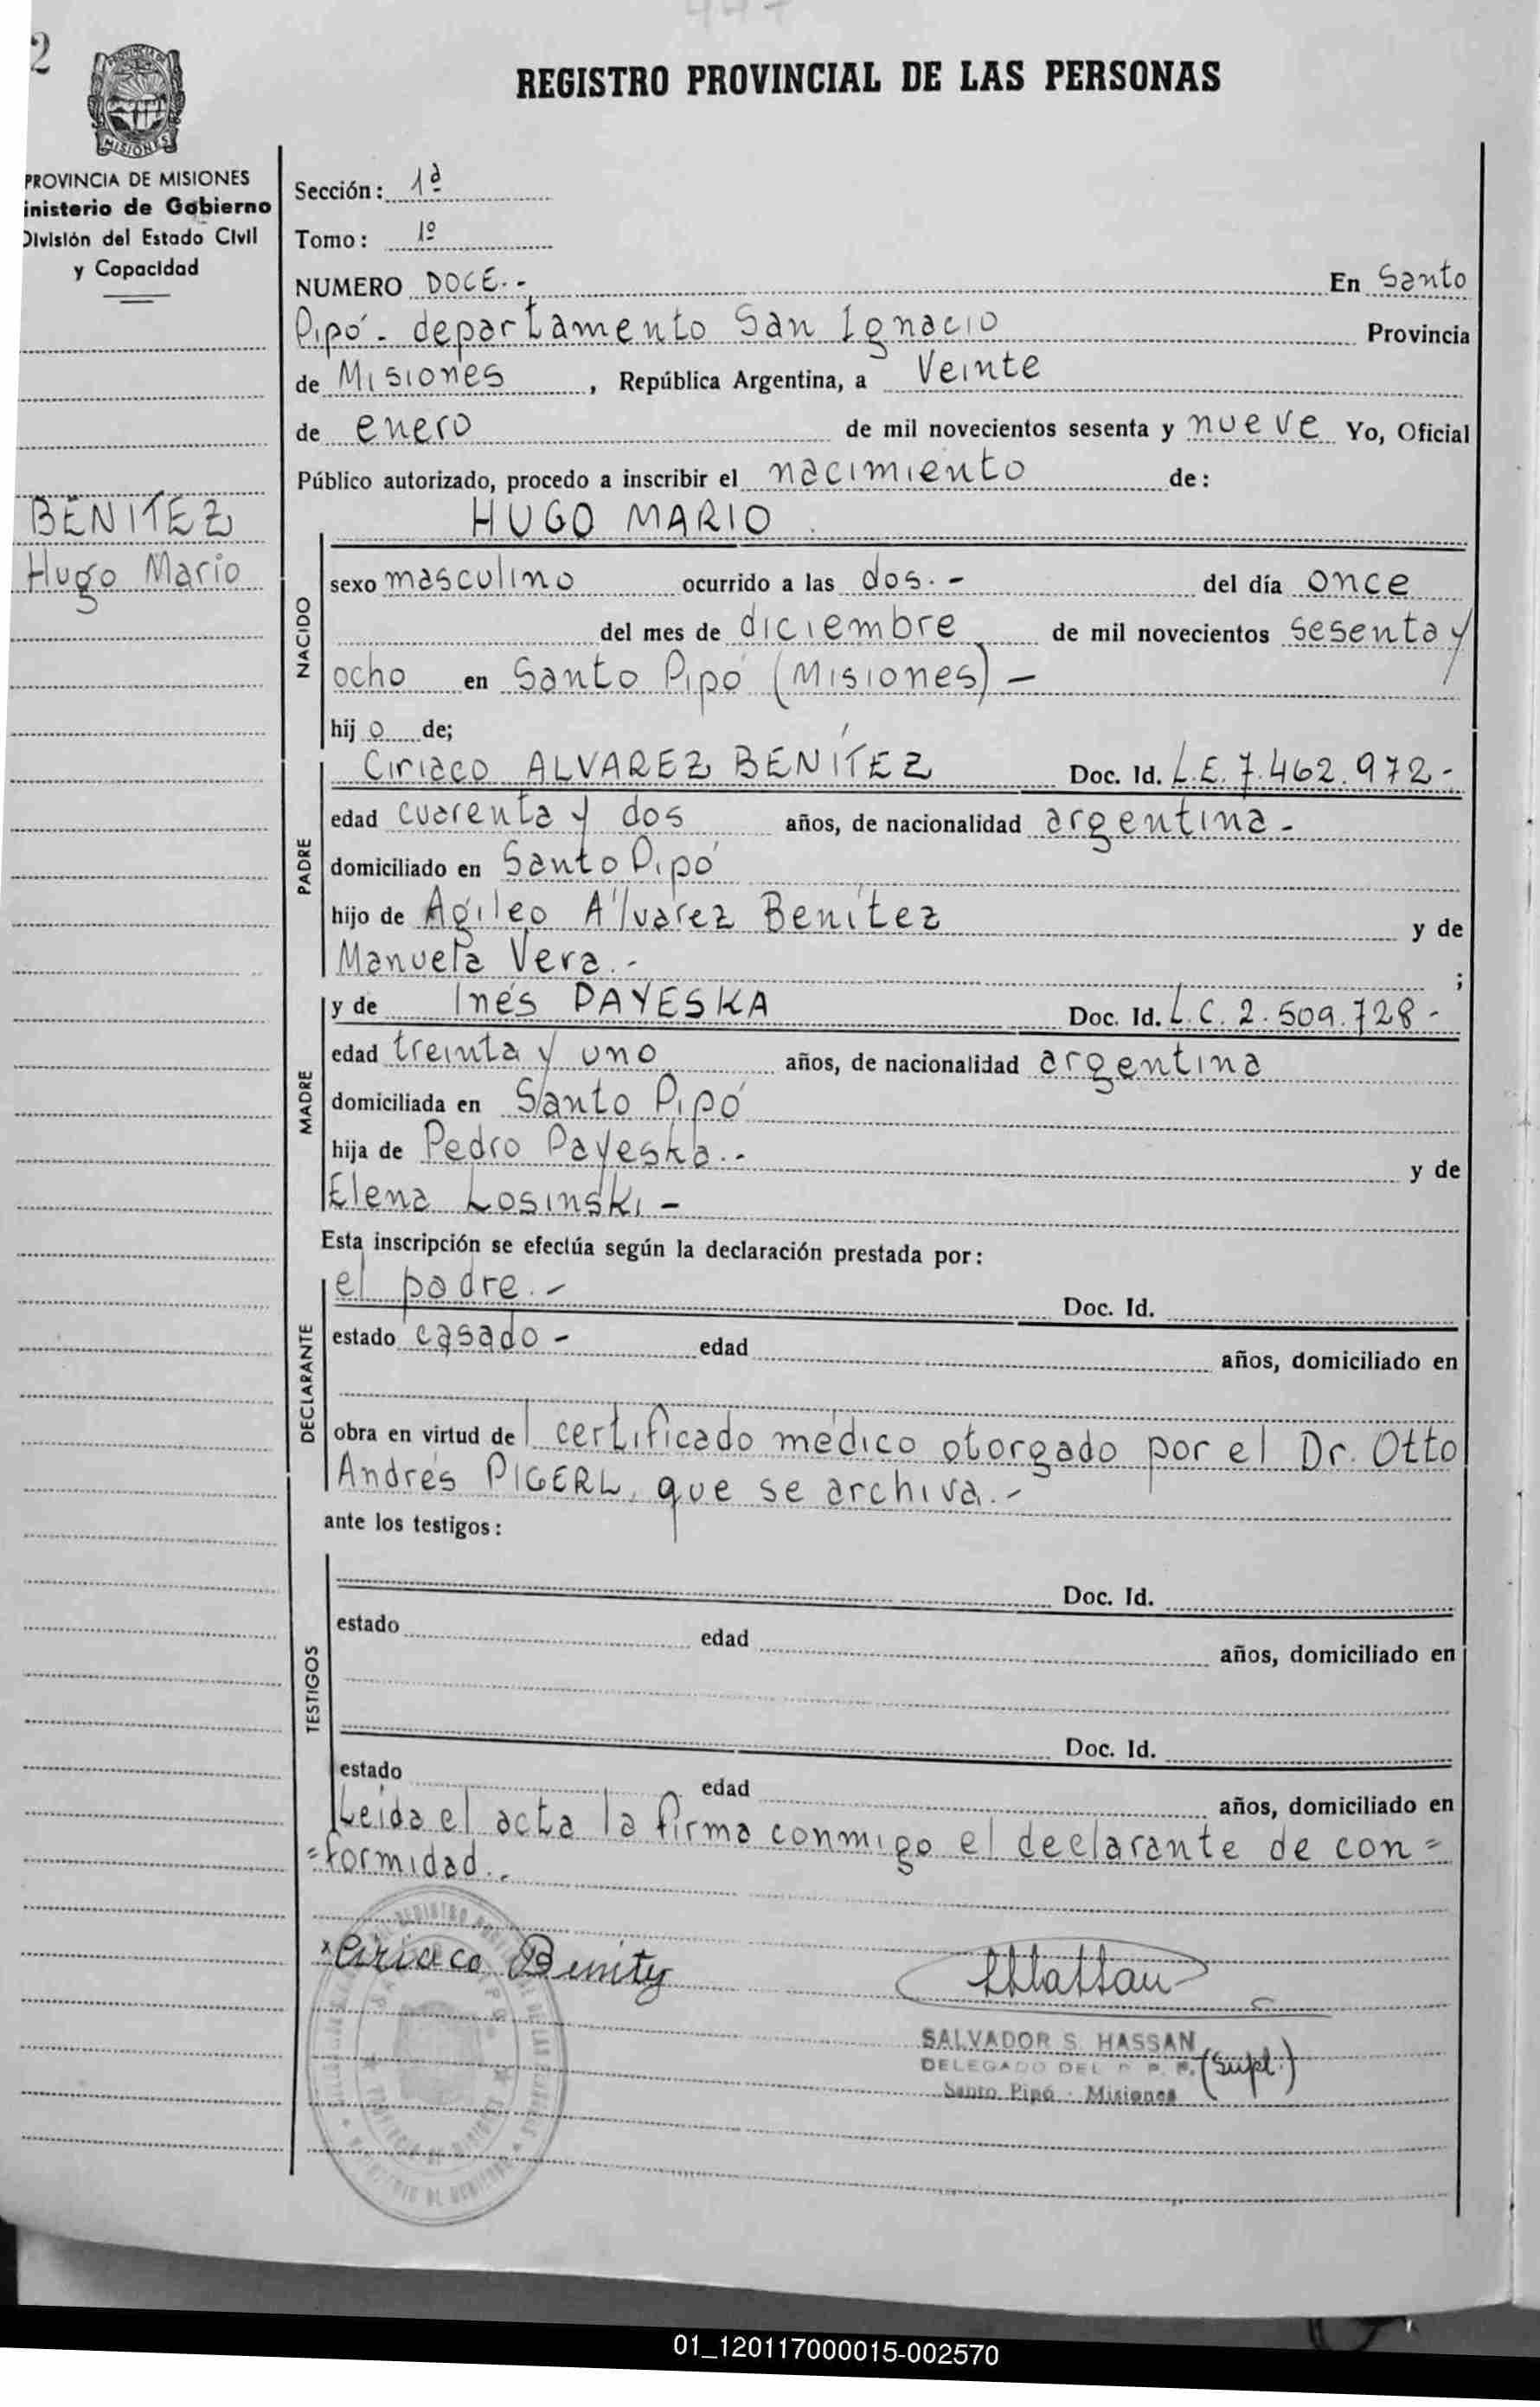 2
REGISTRO PROVINCIAL DE LAS PERSONAS
MISIONES
PROVINCIA DE MISIONES
inisterio de Gobierno
División del Estado Civil
y Capacidad
BENÍTEZ
Hugo Mario
Sección: 1ª
Tomo: 1º
NUMERO DOCE.- En Santo
Pipó - departamento San Ignacio Provincia
de Misiones, República Argentina, a Veinte
de enero de mil novecientos sesenta y nueve Yo, Oficial
Público autorizado, procedo a inscribir el nacimiento de:
HUGO MARIO
NACIDO
sexo masculino ocurrido a las dos.- del día once
del mes de diciembre de mil novecientos sesenta y
ocho en Santo Pipó (Misiones) -
hijo de;
PADRE
Ciriaco ALVAREZ BENÍTEZ Doc. Id. L.E. 7.462.972-
edad cuarenta y dos años, de nacionalidad argentina-
domiciliado en Santo Pipó
hijo de Agileo Alvarez Benítez y de
Manuela Vera.- ;
MADRE
y de Inés PAYESKA Doc. Id. L.C. 2.509.728-
edad treinta y uno años, de nacionalidad argentina
domiciliada en Santo Pipó
hija de Pedro Payeska.- y de
Elena Losinski-
Esta inscripción se efectúa según la declaración prestada por:
DECLARANTE
el padre.- Doc. Id.
estado casado- edad años, domiciliado en
obra en virtud del certificado médico otorgado por el Dr. Otto
Andrés PIGERL, que se archiva.-
ante los testigos:
TESTIGOS
Doc. Id.
estado edad años, domiciliado en
Doc. Id.
estado edad años, domiciliado en
Leida el acta la firma conmigo el declarante de con=
=formidad.-
x Ciriaco Benitez
SALVADOR S. HASSAN
DELEGADO DEL R. P. P. (Supl.)
Santo Pipó - Misiones
01_120117000015-002570